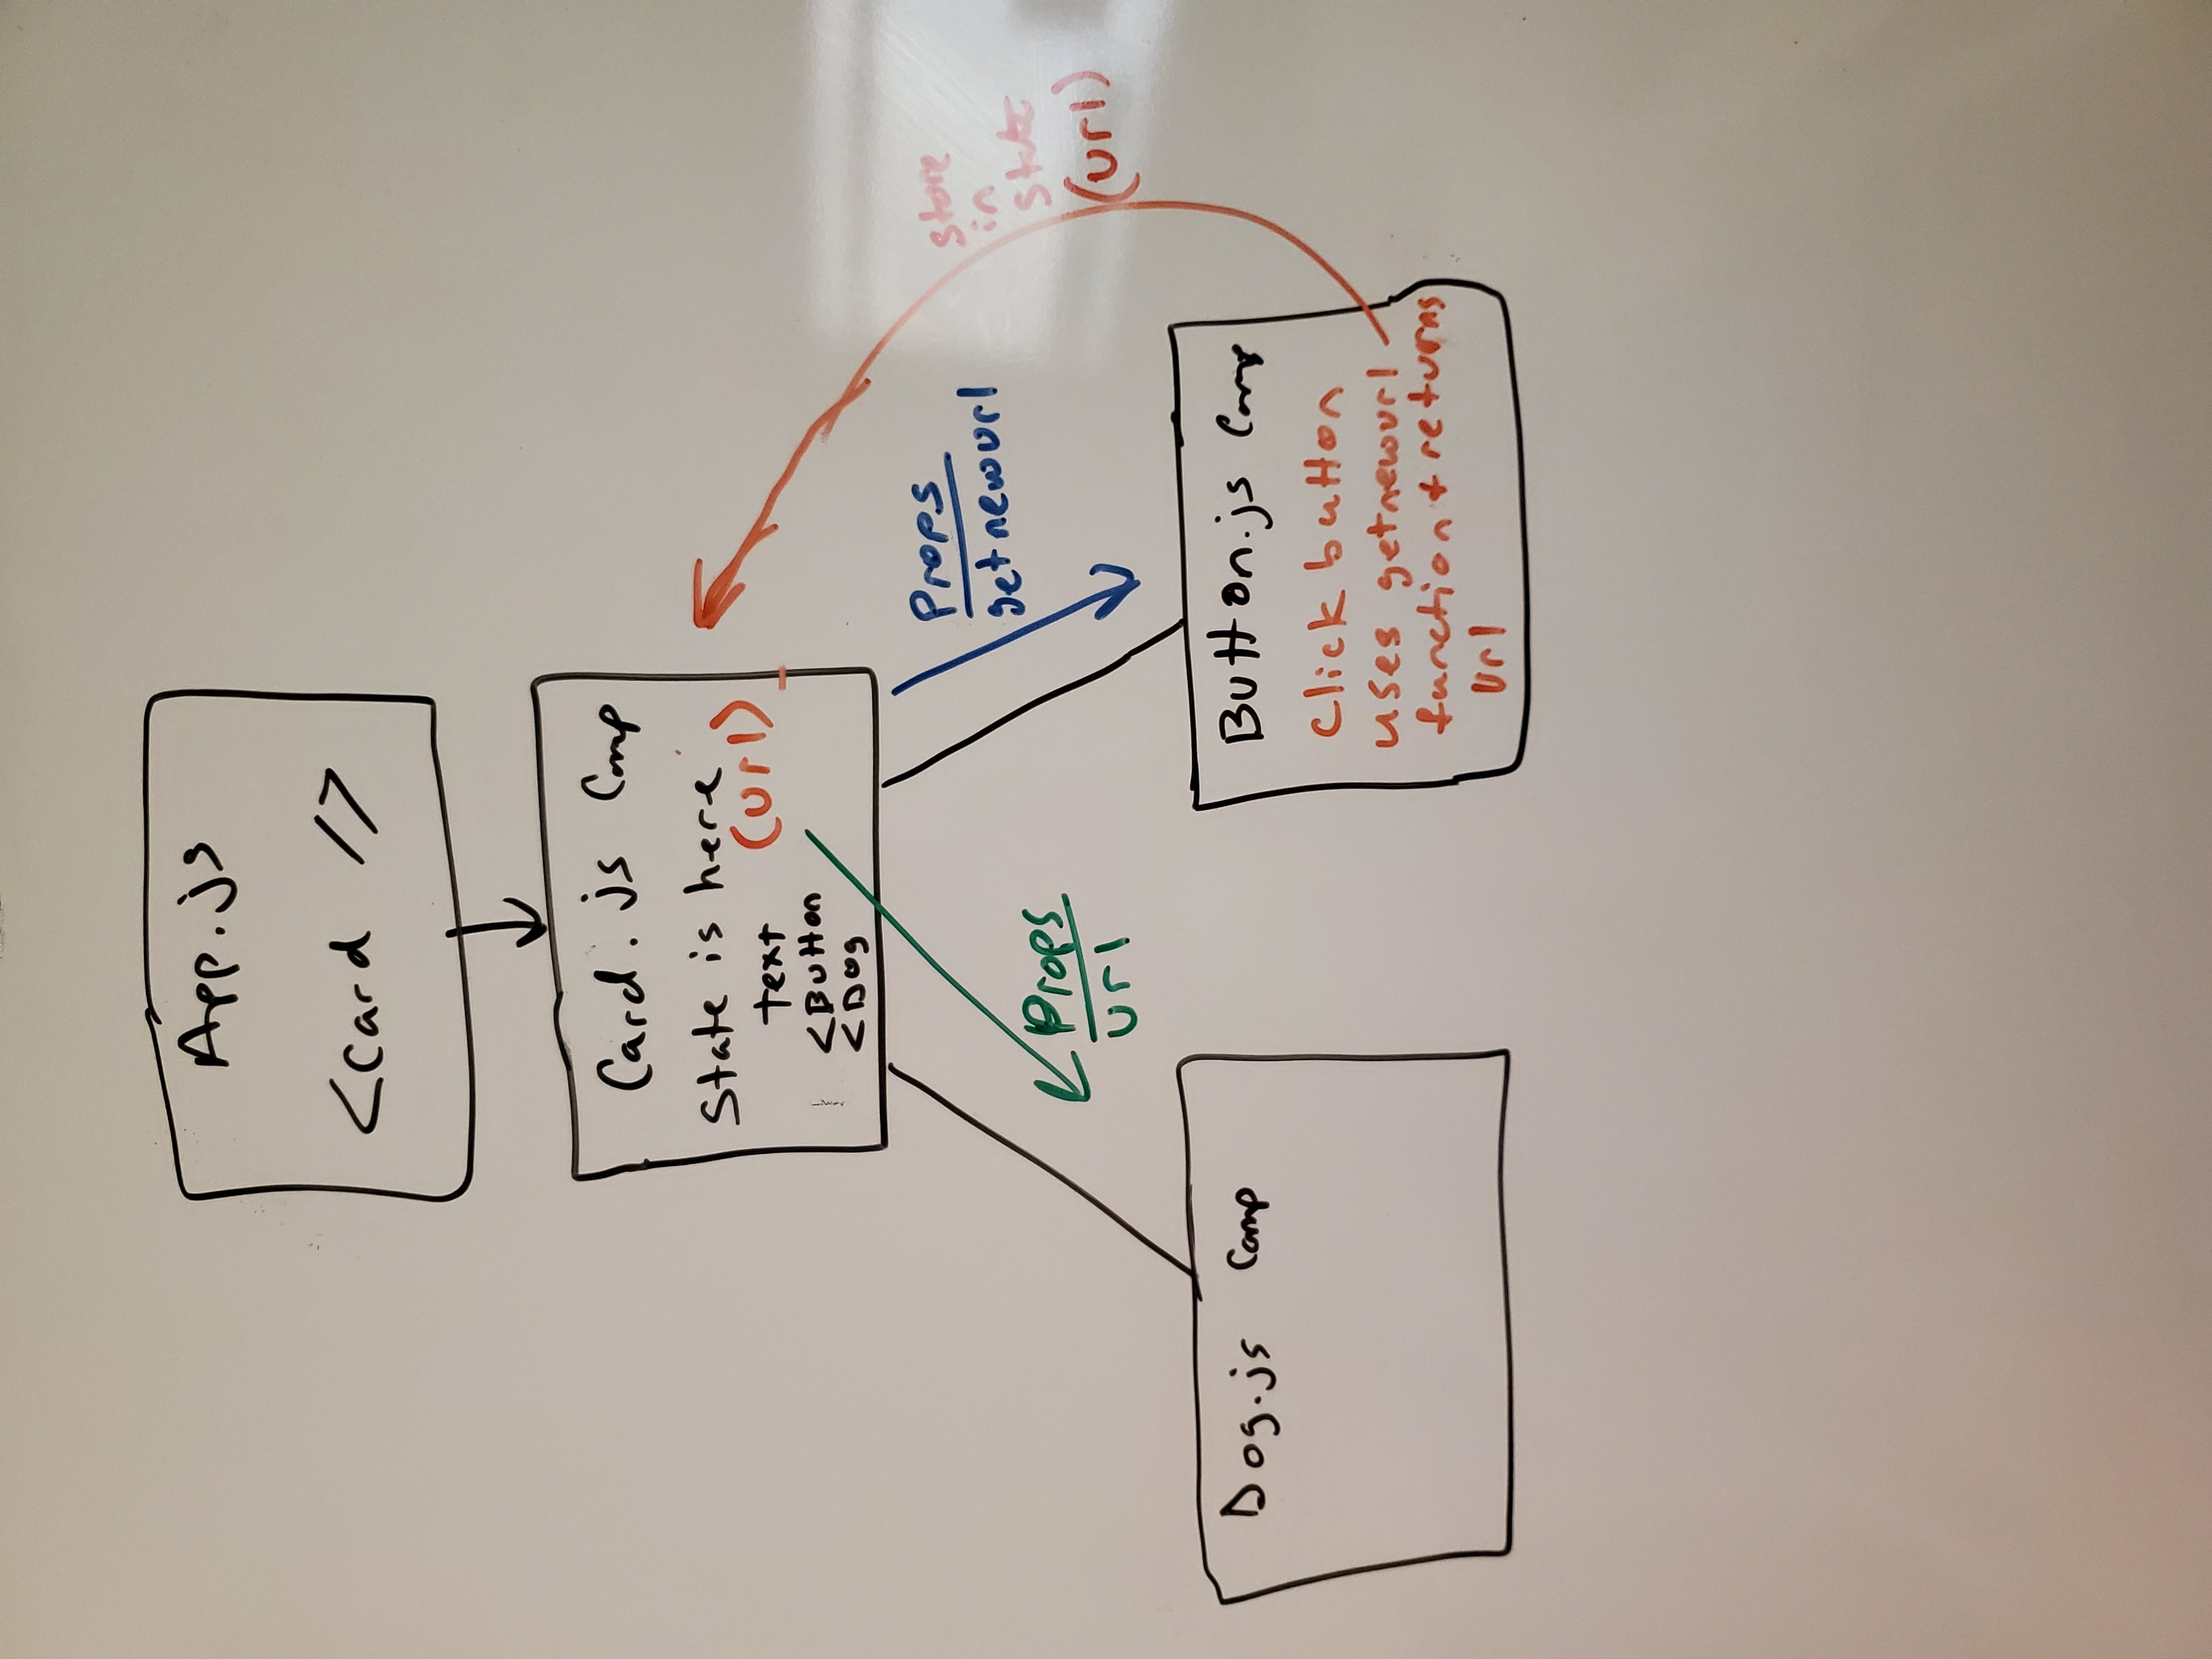 App.js
<Card />
Card.js Comp
State is here
(url)
text
<Button
<Dog
Props
getnewurl
store
in
state
(url)
Props
url
Dog.js Comp
Button.js Comp
Click button
uses getnewurl
function + returns
url